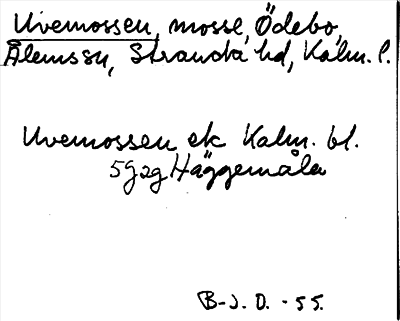 Uvemossen, mosse, Ödebo,
Ålems sn, Stranda hd, Kalm. l.
Uvemossen ek Kalm. bl.
5g2g Häggemåla
B-J. D. - 55.